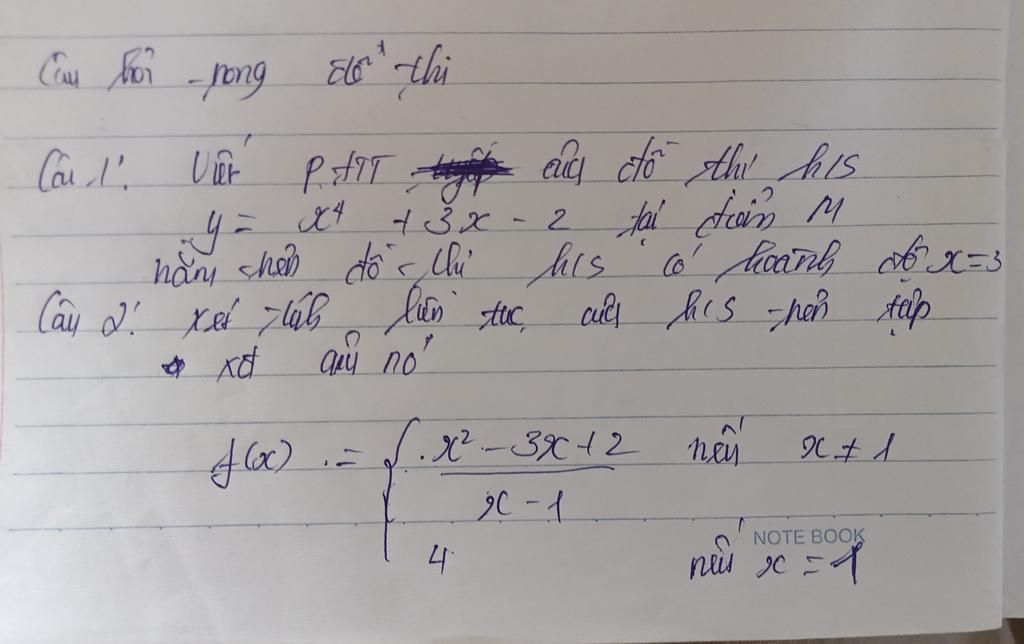 Câu hỏi trong đồ thị
Câu 1: Viết P.tTT của đồ thị h/s
y = x⁴ + 3x - 2 tại điểm M
nằm trên đồ thị h/s có hoành độ x=3
Câu 2: xét tính liên tục của h/s trên tập
xđ của nó
f(x) = { x² - 3x + 2 nếu x ≠ 1
x - 1
4 nếu x = 1
NOTE BOOK